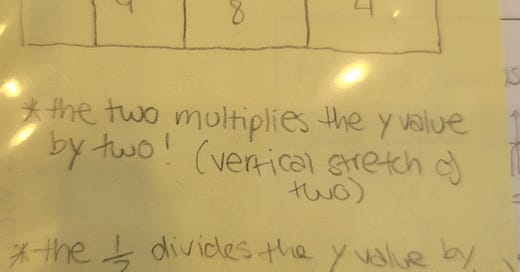 8 4
*the two multiplies the y value
by two! (vertical stretch of
two)
*the 1/2 divides the y value by